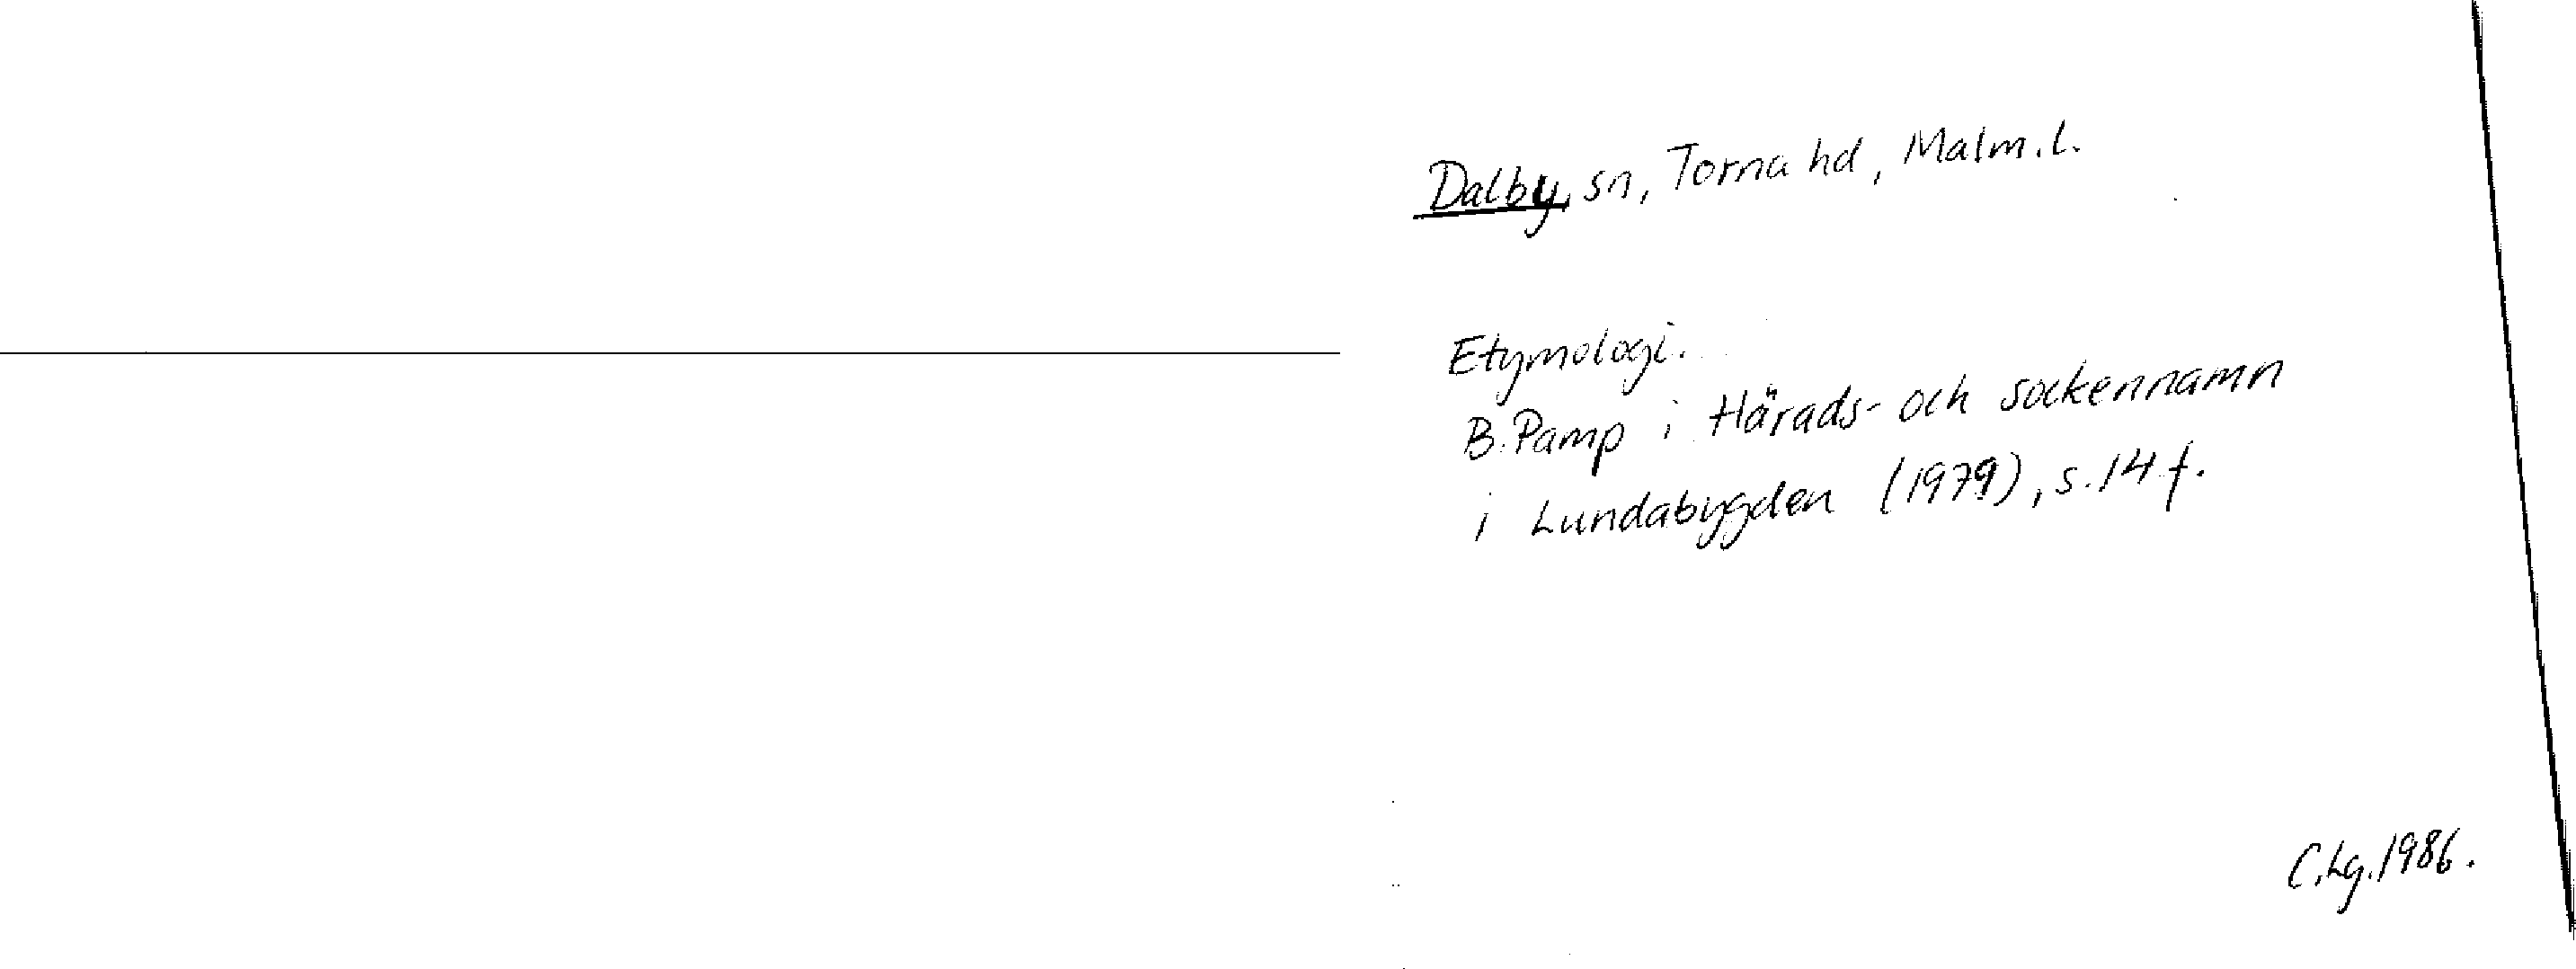 Dalby, sn, Torna hd, Malm.l.
Etymologi.
B. Pamp i Härads- och sockennamn
i Lundabygden (1979), s. 14 f.
C.Lg. 1986.